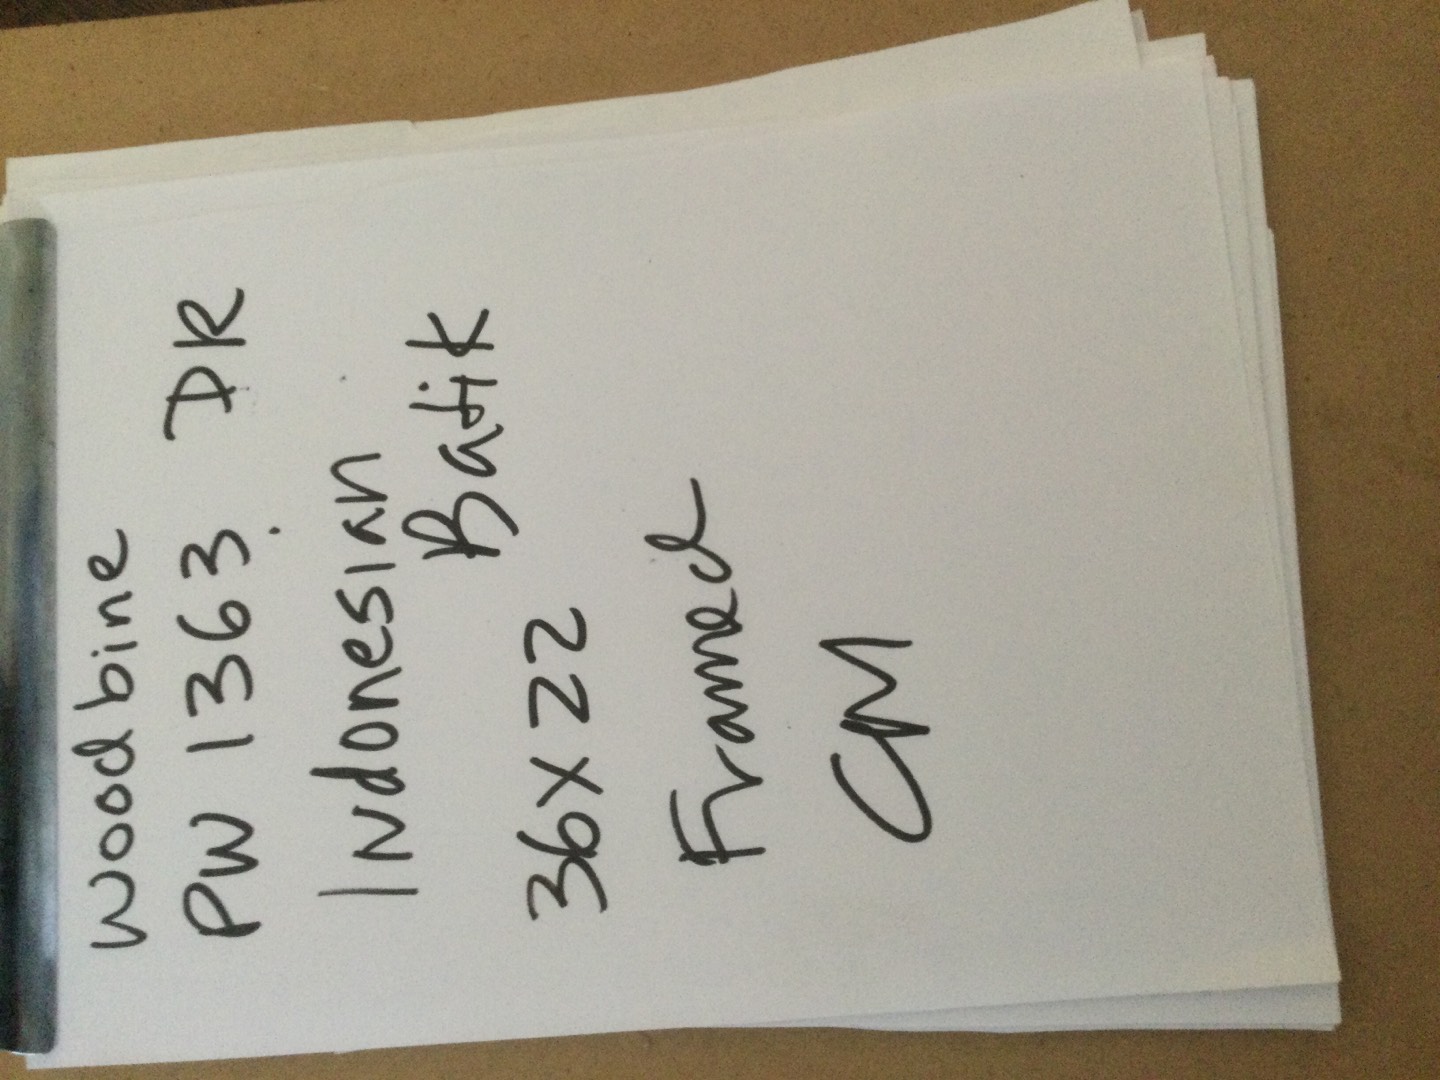 Woodbine
PW 1363 DR
Indonesian
Batik
36x22
Framed
CM